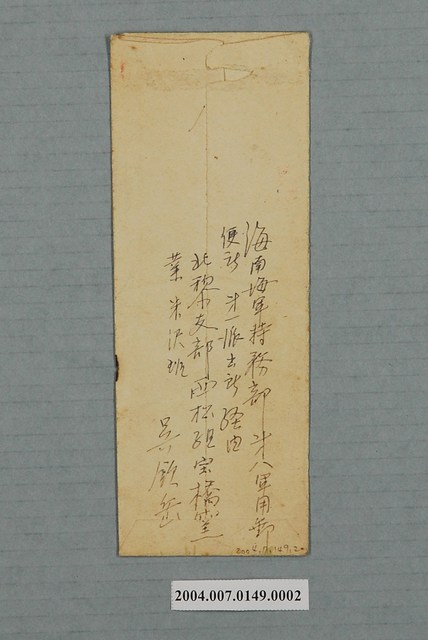 海南海軍特務部 第八軍用郵
便所 第一派出所 経由
北 支部 西松組 宗橋
業 米沢班
呉欽岳
2004.7.0149.2
2004.007.0149.0002